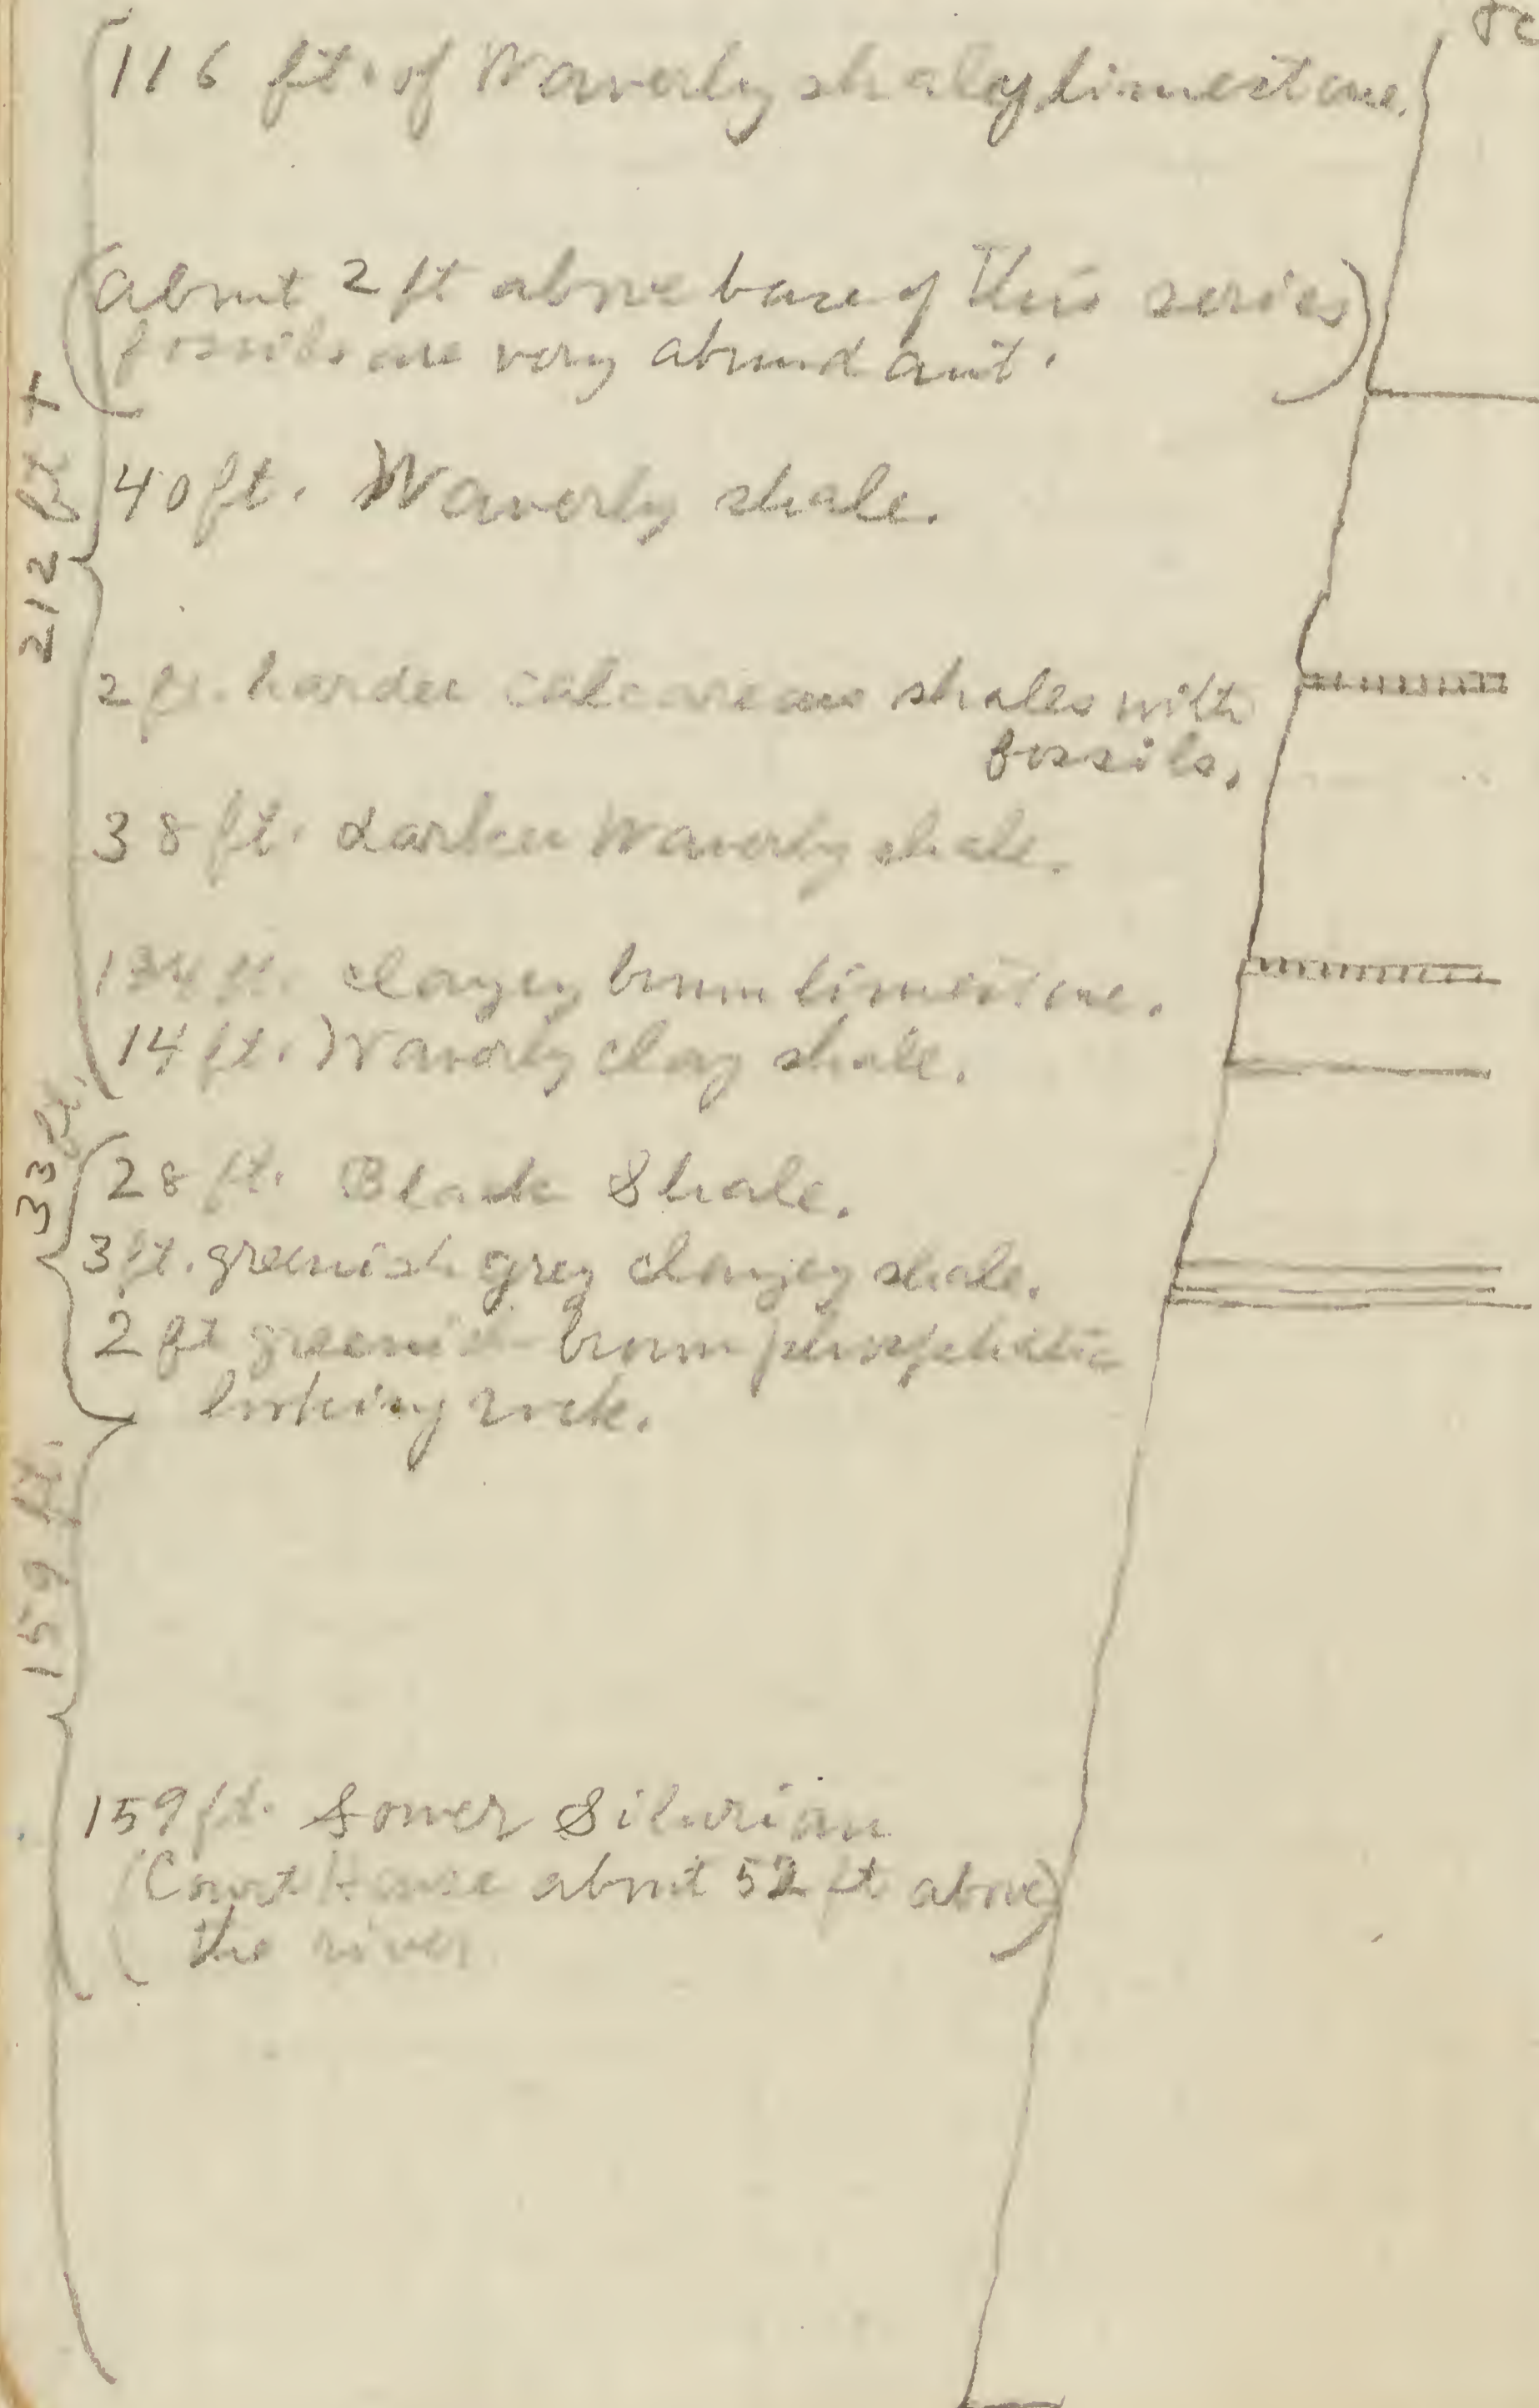 116 ft. of Waverly shaley limestone.
(about 2 ft above base of this series
fossils are very abundant.)
212 ft +
40 ft. Waverly shale.
2 ft. harder calcareous shales with
fossils.
38 ft. darker Waverly shale.
ft. clayey brown limestone.
14 ft. Waverly clay shale.
33 ft.
28 ft. Black Shale.
3 ft. greenish grey clayey shale.
2 ft greenish brown phosphatic
looking rock.
159 ft.
159 ft. Lower Silurian
(Court House about 52 ft above
the river)